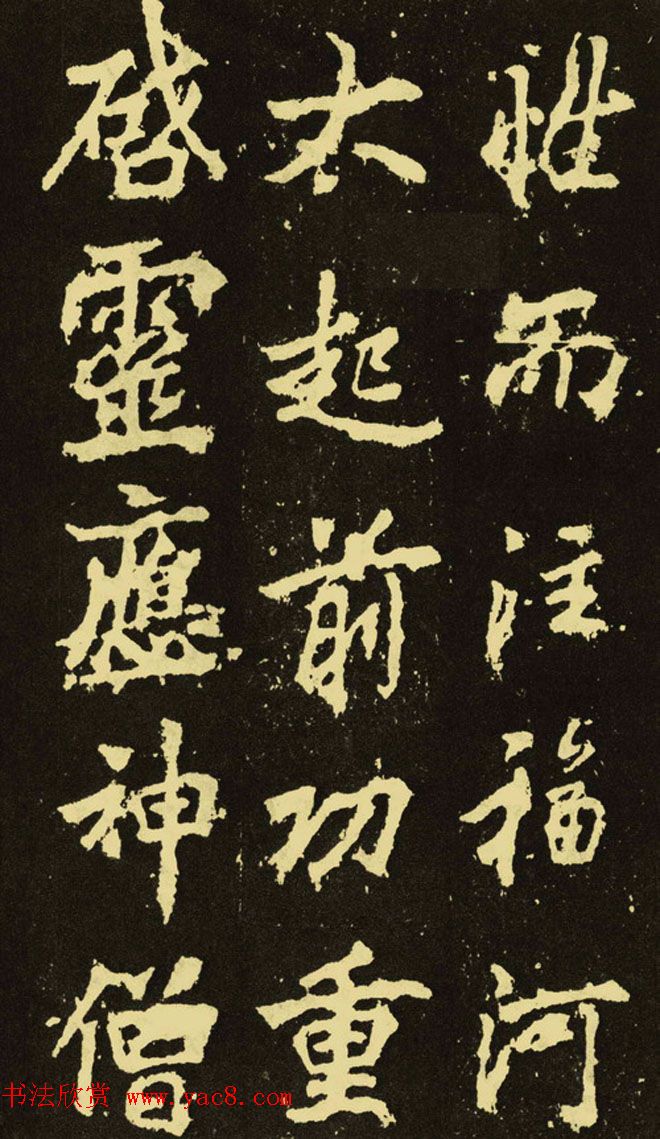 性而注福河
太起前功重
啓靈應神僧
书法欣赏 www.yac8.com